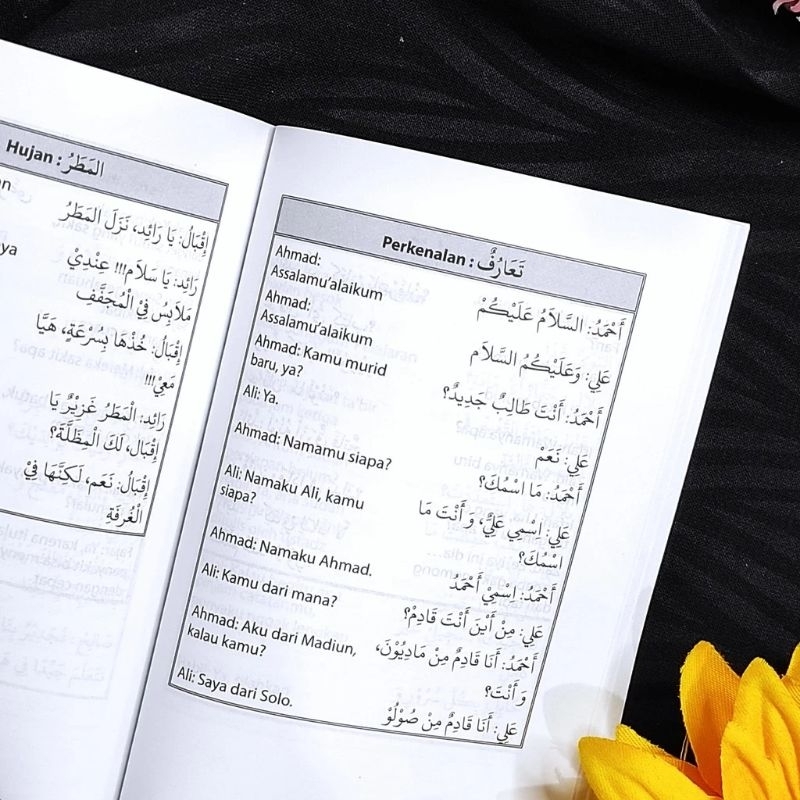 Hujan : المَطَرُ
إِقْبَالُ: يَا رَائِد، نَزَلَ المَطَرُ
رَائِد: يَا سَلاَم!!! عِنْدِيْ
مَلاَبِسُ فِيْ الْمُجَفَّفِ
إِقْبَالُ: خُذْهَا بِسُرْعَةٍ، هَيَّا
مَعِيْ!!!
رَائِد: الْمَطَرُ غَزِيْرٌ يَا
إِقْبَال، لَكَ الْمِظَلَّة؟
إِقْبَالُ: نَعَم، لَكِنَّهَا فِيْ
الْغُرْفَةِ
ya
Perkenalan : تَعَارُفٌ
Ahmad:
Assalamu'alaikum
أَحْمَدُ: السَّلاَمُ عَلَيْكُمْ
Ahmad:
Assalamu'alaikum
عَلِي: وَعَلَيْكُمُ السَّلاَم
Ahmad: Kamu murid
baru, ya?
أَحْمَدُ: أَنْتَ طَالِبٌ جَدِيدٌ؟
Ali: Ya.
عَلِي: نَعَمْ
Ahmad: Namamu siapa?
أَحْمَدُ: مَا اسْمُكَ؟
Ali: Namaku Ali, kamu
siapa?
عَلِي: اِسْمِي عَلِيٌّ، وَ أَنْتَ مَا
اسْمُكَ؟
Ahmad: Namaku Ahmad.
أَحْمَدُ: اِسْمِيْ أَحْمَدُ
Ali: Kamu dari mana?
عَلِي: مِنْ أَيْنَ أَنْتَ قَادِمٌ؟
Ahmad: Aku dari Madiun,
kalau kamu?
أَحْمَدُ: أَنَا قَادِمٌ مِنْ مَادِيُوْنَ،
وَ أَنْتَ؟
Ali: Saya dari Solo.
عَلِي: أَنَا قَادِمٌ مِنْ صُوْلُوْ